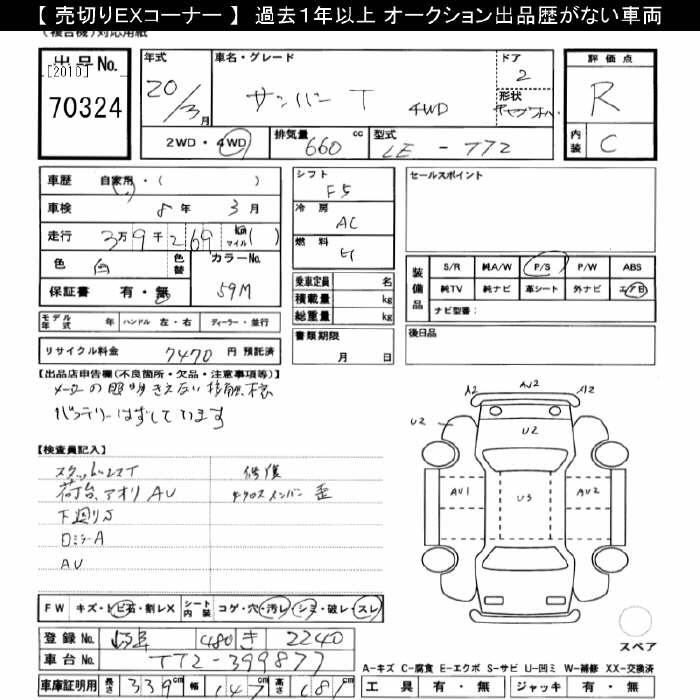 【 売切りEXコーナー 】 過去１年以上 オークション出品歴がない車両
(複合機)対応用紙
出品No.
[2010]
70324
年式
20/3月
車名・グレード
サンバー T 4WD
ドア
2
形状
2WD・4WD
排気量
660 cc
型式
LE-TT2
評価点
R
内装
C
車歴 自家用・( )
車検 8年 3月
走行 3万9千269 Km マイル ( )
色 白
色替
カラーNo.
59M
保証書 有・無
モデル年式 年 ハンドル 左・右 ディーラー・並行
リサイクル料金 7470 円 預託済
シフト
F5
冷房
AC
燃料
乗車定員 名
積載量 kg
総重量 kg
書類期限
月 日
セールスポイント
装備品
S/R 純A/W P/S P/W ABS
純TV 純ナビ 革シート 外ナビ エアB
ナビ型番：
後日品
【出品店申告欄(不良箇所・欠品・注意事項等)】
メーターの照明きえない
バッテリーはずしています
【検査員記入】
スタットレスT
荷台、アオリ AU
下廻りS
ロミラーA
AU
修復
クロスメンバー 歪
A2 AU2 A12
U2
U2
AU1
U3
AU2
スペア
FW キズ・トビ石・割レX シート内装 コゲ・穴・汚レ・シミ・破レ・スレ
登録No. 岐阜 480 き 2240
車台No. TT2-399877
車庫証明用 長さ 339cm 幅 147cm 高さ 187cm
A−キズ C−腐食 E−エクボ S−サビ U−凹ミ W−補修 XX−交換済
工具 有・無 ジャッキ 有・無